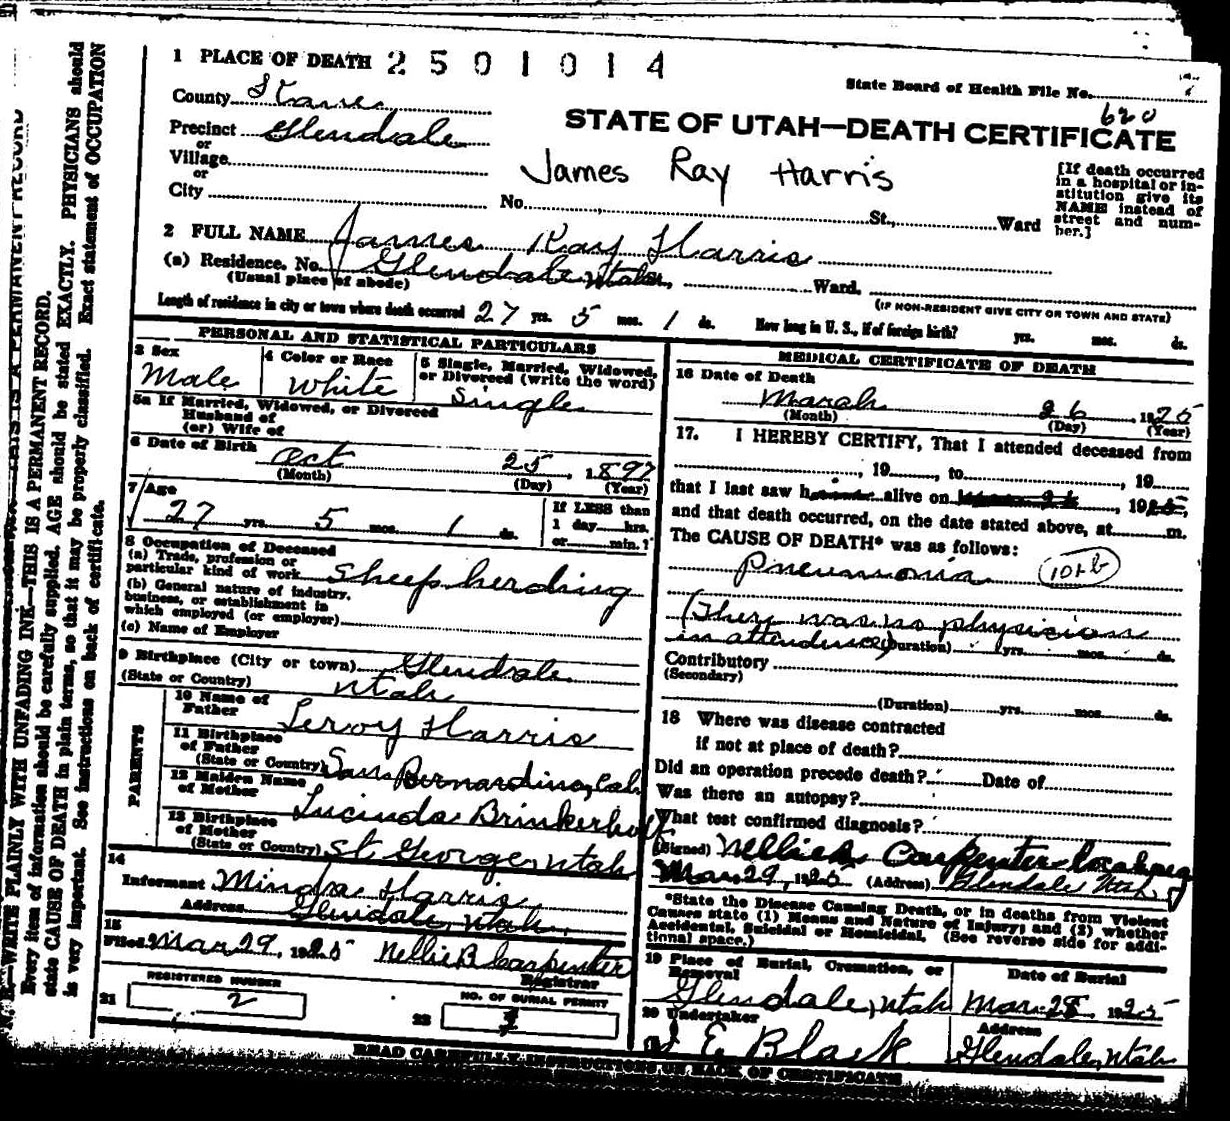 1 PLACE OF DEATH 2501014
State Board of Health File No.
620
County Kane
STATE OF UTAH—DEATH CERTIFICATE
Precinct Glendale
or
Village
or
City
James Ray Harris
No. St., Ward
[If death occurred
in a hospital or in-
stitution give its
NAME instead of
street and num-
ber.]
2 FULL NAME James Ray Harris
(a) Residence. No. Glendale Utah, Ward,
(Usual place of abode)
(IF NON-RESIDENT GIVE CITY OR TOWN AND STATE)
Length of residence in city or town where death occurred 27 yrs. 5 mos. 1 ds. How long in U. S., if of foreign birth? yrs. mos. ds.
PERSONAL AND STATISTICAL PARTICULARS
3 Sex
Male
4 Color or Race
white
5 Single, Married, Widowed,
or Divorced (write the word)
Single
5a If Married, Widowed, or Divorced
Husband of
(or) Wife of
6 Date of Birth Oct 25, 1897
(Month) (Day) (Year)
7 Age
27 yrs. 5 mos. 1 ds.
If LESS than
1 day hrs.
or min.?
8 Occupation of Deceased
(a) Trade, profession or
particular kind of work sheep herding
(b) General nature of industry,
business, or establishment in
which employed (or employer)
(c) Name of Employer
9 Birthplace (City or town) Glendale
(State or Country) Utah
PARENTS
10 Name of
Father Leroy Harris
11 Birthplace
of Father
(State or Country) San Bernardino, Cal
12 Maiden Name
of Mother Lucinda Brinkerhoff
13 Birthplace
of Mother
(State or Country) St George, Utah
14
Informant Minda Harris
Address Glendale, Utah,
15
Filed Mar 29, 1925 Nellie B Carpenter
Registrar
REGISTERED NUMBER
21 2
NO. OF BURIAL PERMIT
22
MEDICAL CERTIFICATE OF DEATH
16 Date of Death
March 26, 1925
(Month) (Day) (Year)
17. I HEREBY CERTIFY, That I attended deceased from
, 19 , to , 19
that I last saw h alive on 1925,
and that death occurred, on the date stated above, at m.
The CAUSE OF DEATH* was as follows:
Pneumonia
(There was no physician
in attendence) (Duration) yrs. mos. ds.
Contributory
(Secondary)
(Duration) yrs. mos. ds.
18 Where was disease contracted
if not at place of death?
Did an operation precede death? Date of
Was there an autopsy?
What test confirmed diagnosis?
(Signed) Nellie B. Carpenter local reg
Mar. 29, 1925 (Address) Glendale Utah
*State the Disease Causing Death, or in deaths from Violent
Causes state (1) Means and Nature of Injury; and (2) whether
Accidental, Suicidal or Homicidal. (See reverse side for addi-
tional space.)
19 Place of Burial, Cremation, or
Removal
Glendale, Utah
Date of Burial
Mar. 28, 1925
20 Undertaker
E Black
Address
Glendale, Utah
READ CAREFULLY INSTRUCTIONS ON BACK OF CERTIFICATE
B.—WRITE PLAINLY WITH UNFADING INK—THIS IS A PERMANENT RECORD.
Every item of information should be carefully supplied. AGE should be stated EXACTLY. PHYSICIANS should
state CAUSE OF DEATH in plain terms, so that it may be properly classified. Exact statement of OCCUPATION
is very important. See instructions on back of certificate.